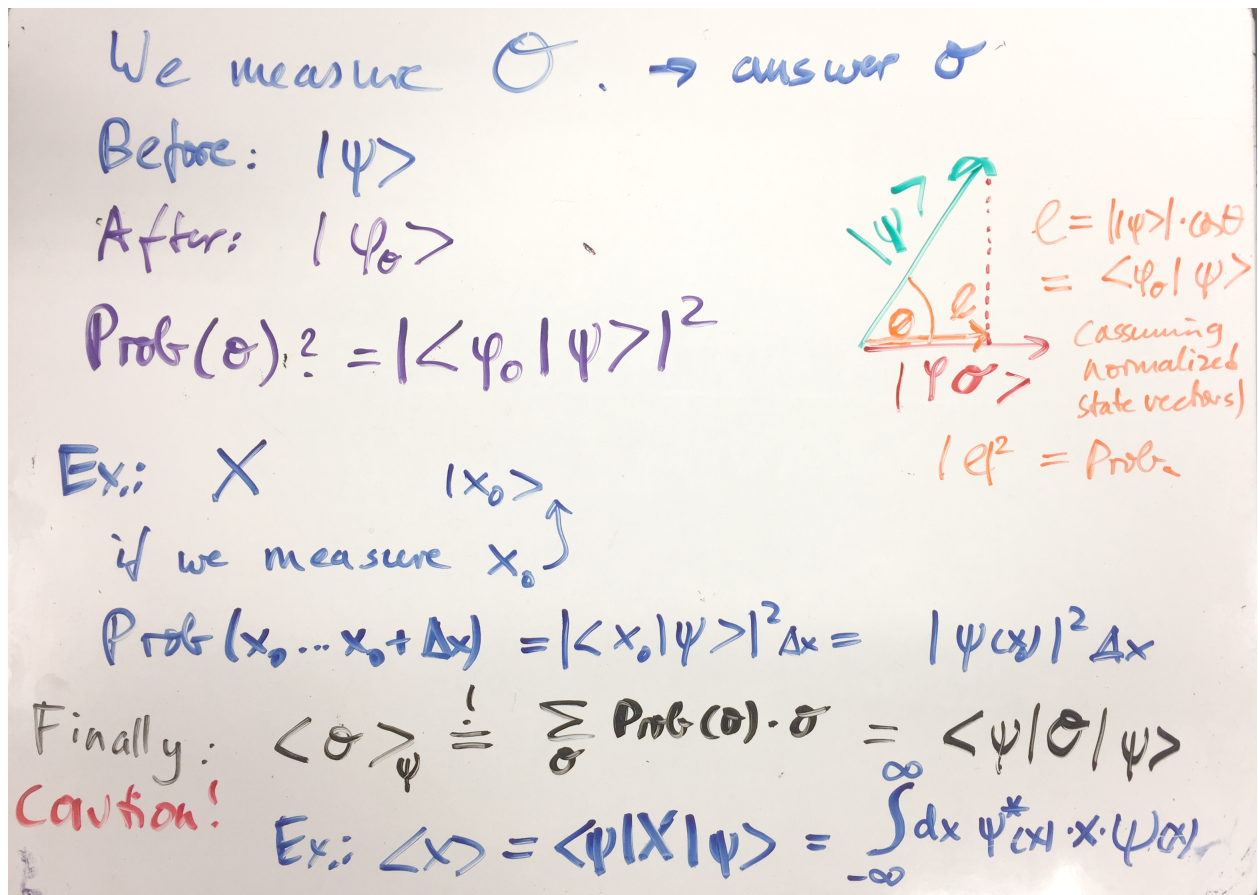 We measure O. → answer σ
Before: |ψ>
After: |φ_σ>
Prob(σ).? = |<φ_σ|ψ>|²
|ψ>
θ
l
|φσ>
l = ||ψ>|·cosθ
= <φ_σ|ψ>
(assuming
normalized
state vectors)
|l|² = Prob.
Ex.: X |x₀>
if we measure x₀
Prob(x₀...x₀+Δx) = |<x₀|ψ>|²Δx = |ψ(x)|²Δx
Finally: <σ>_ψ ≐! Σ_σ Prob(σ)·σ = <ψ|O|ψ>
Caution!
Ex.: <x> = <ψ|X|ψ> = ∫_{-∞}^{∞} dx ψ*(x)·x·ψ(x)